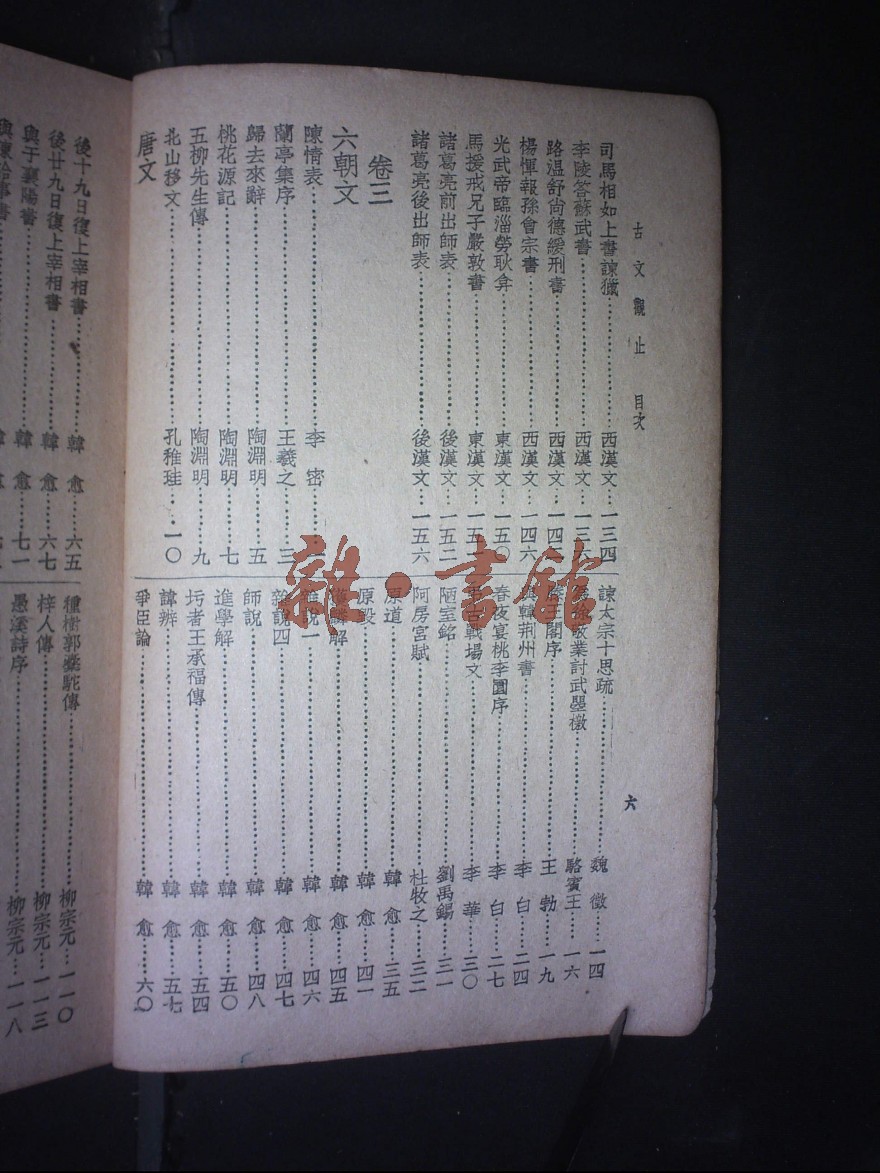 古文觀止 目次
六
司馬相如上書諫獵……西漢文…一三四
李陵答蘇武書……西漢文…一三六
路温舒尚德緩刑書……西漢文…一四
楊惲報孫會宗書……西漢文…一四六
光武帝臨淄勞耿弇……東漢文…一五〇
馬援戒兄子嚴敦書……東漢文…一五
諸葛亮前出師表……後漢文…一五二
諸葛亮後出師表……後漢文…一五六
卷三
六朝文
陳情表……李密…
蘭亭集序……王羲之…三
歸去來辭……陶淵明…五
桃花源記……陶淵明…七
五柳先生傳……陶淵明…九
北山移文……孔稚珪…一〇
唐文
諫太宗十思疏……魏徵…一四
徐敬業討武曌檄……駱賓王…一六
王閣序……王勃…一九
韓荆州書……李白…二四
春夜宴桃李園序……李白…二七
古戰場文……李華…三〇
陋室銘……劉禹錫…三一
阿房宮賦……杜牧之…三二
原道……韓愈…三五
原毀……韓愈…四一
麟解……韓愈…四五
雜說一……韓愈…四六
雜說四……韓愈…四七
師說……韓愈…四八
進學解……韓愈…五〇
圬者王承福傳……韓愈…五四
諱辨……韓愈…五七
爭臣論……韓愈…六〇
後十九日復上宰相書……韓愈…六五
後廿九日復上宰相書……韓愈…六七
與于襄陽書……韓愈…七一
種樹郭橐駝傳……柳宗元…一一〇
梓人傳……柳宗元…一一三
愚溪詩序……柳宗元…一一八
雜·書館